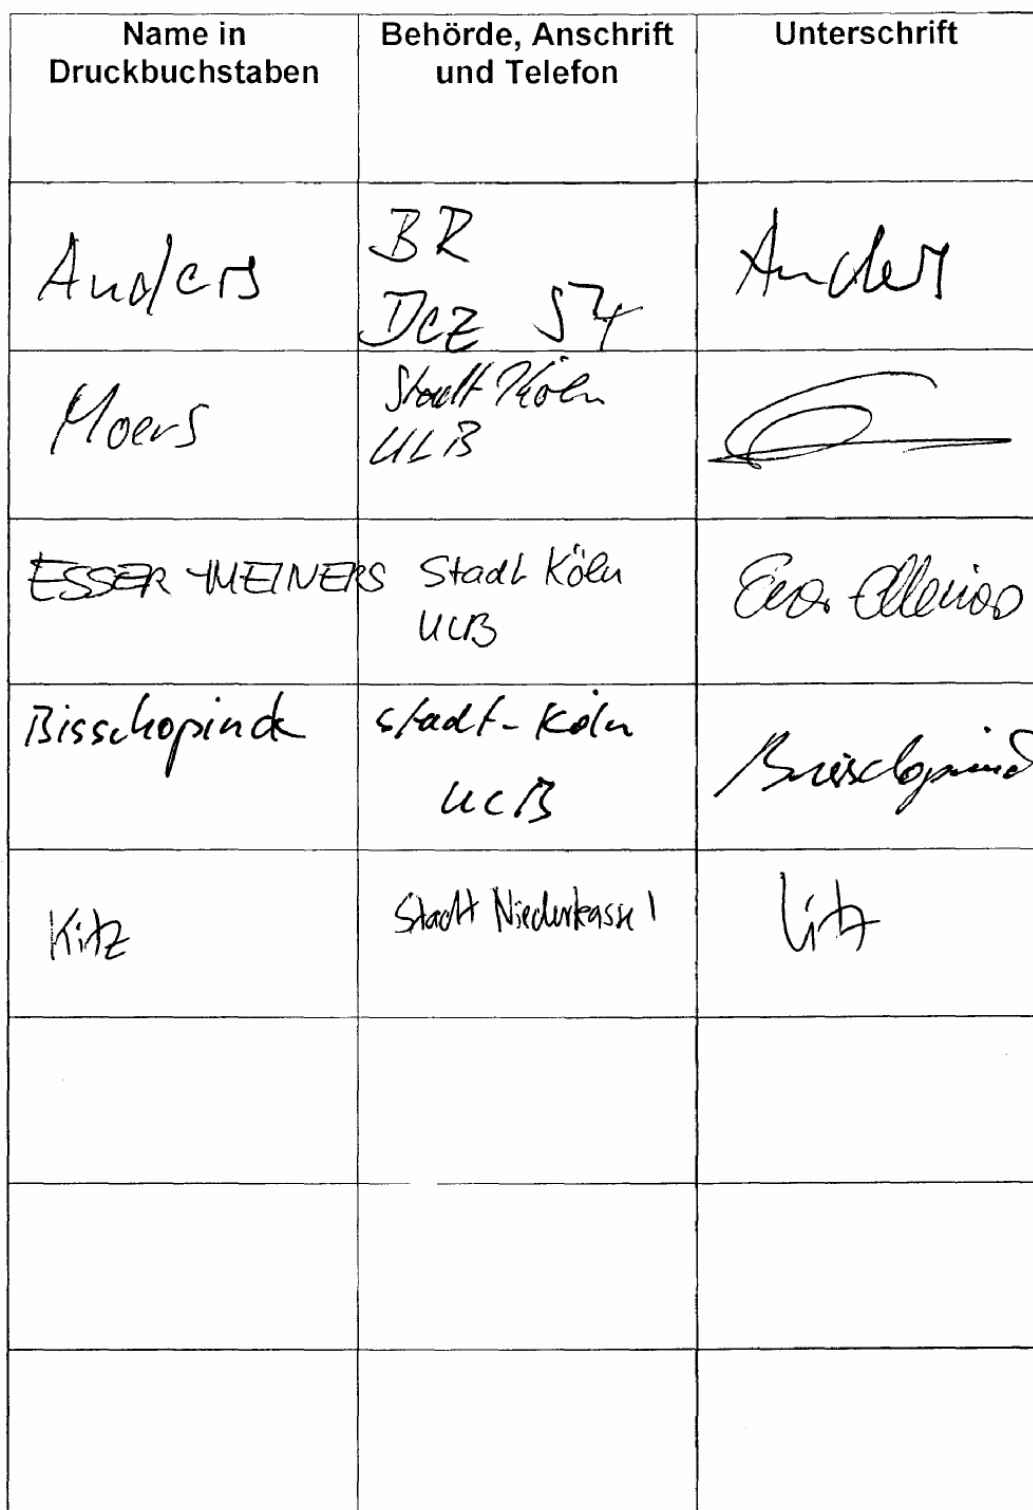 Name in
Druckbuchstaben
Behörde, Anschrift
und Telefon
Unterschrift
Anders
BR
Dez 54
Anders
Moers
Stadt Köln
ULB
ESSER-MEINERS
Stadt Köln
ULB
Bisschopinck
Stadt-Köln
ULB
Kitz
Stadt Niederkassel
Kitz